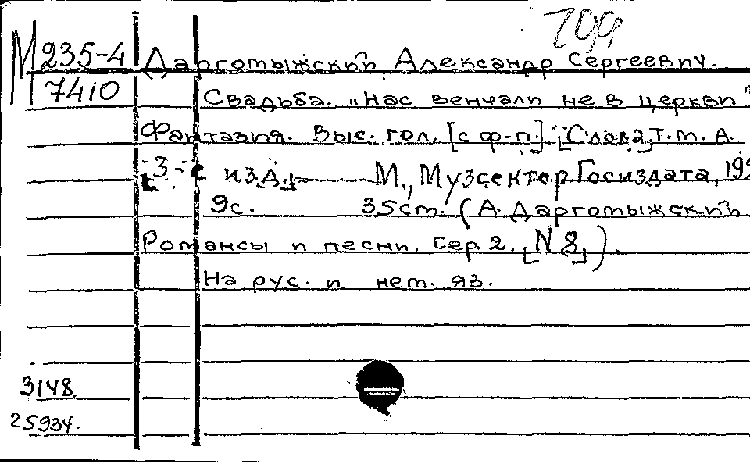 709
М 235-4
7410
Даргомыжский Александр Сергеевич.
Свадьба. "Нас венчали не в церкви"
Фантазия. Выс. гол. [с ф-п.] [Слова] Т.м.А.
[3-е изд.] М., Музсектор Госиздата, 192
9с. 35см. (А. Даргомыжский
Романсы и песни. Сер 2. [N 8]).
На рус. и нем. яз.
3148
25934.